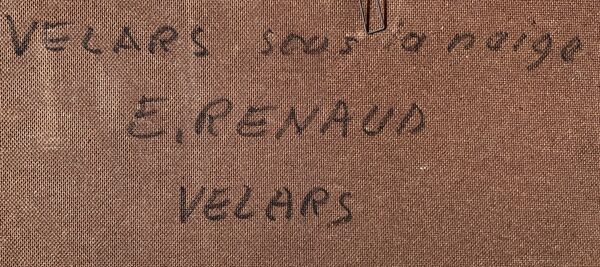 VELARS sous la neige
E. RENAUD
VELARS